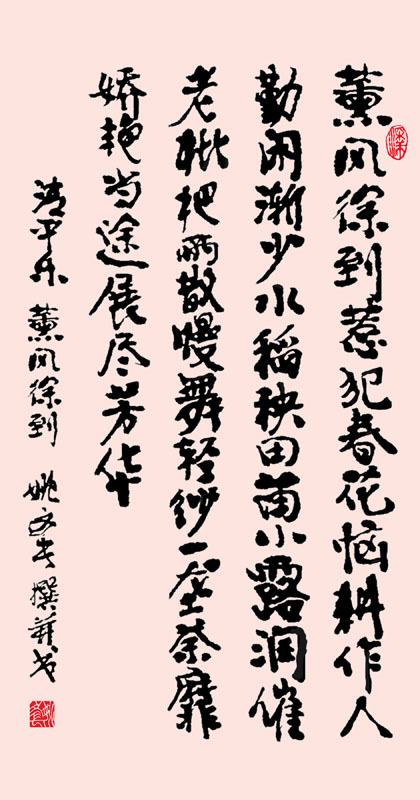 薰风徐到惹犯春花恼耕作人
勤闲渐少水稻秧田苗小露润催
老枇杷雨散慢舞轻纱一丛荼靡
娇艳当途展尽芳华
清平乐 薰风徐到 姚文 撰并书